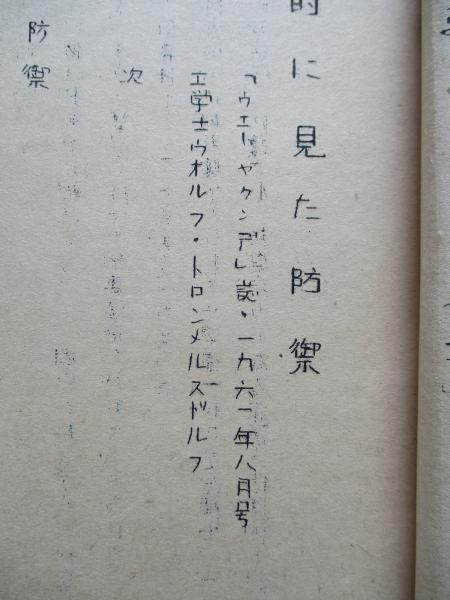 的に見た防禦
「ウエールヤクンデ」誌・一九六一年八月号
工学士ウオルフ・トロンメルスドルフ
次
防禦